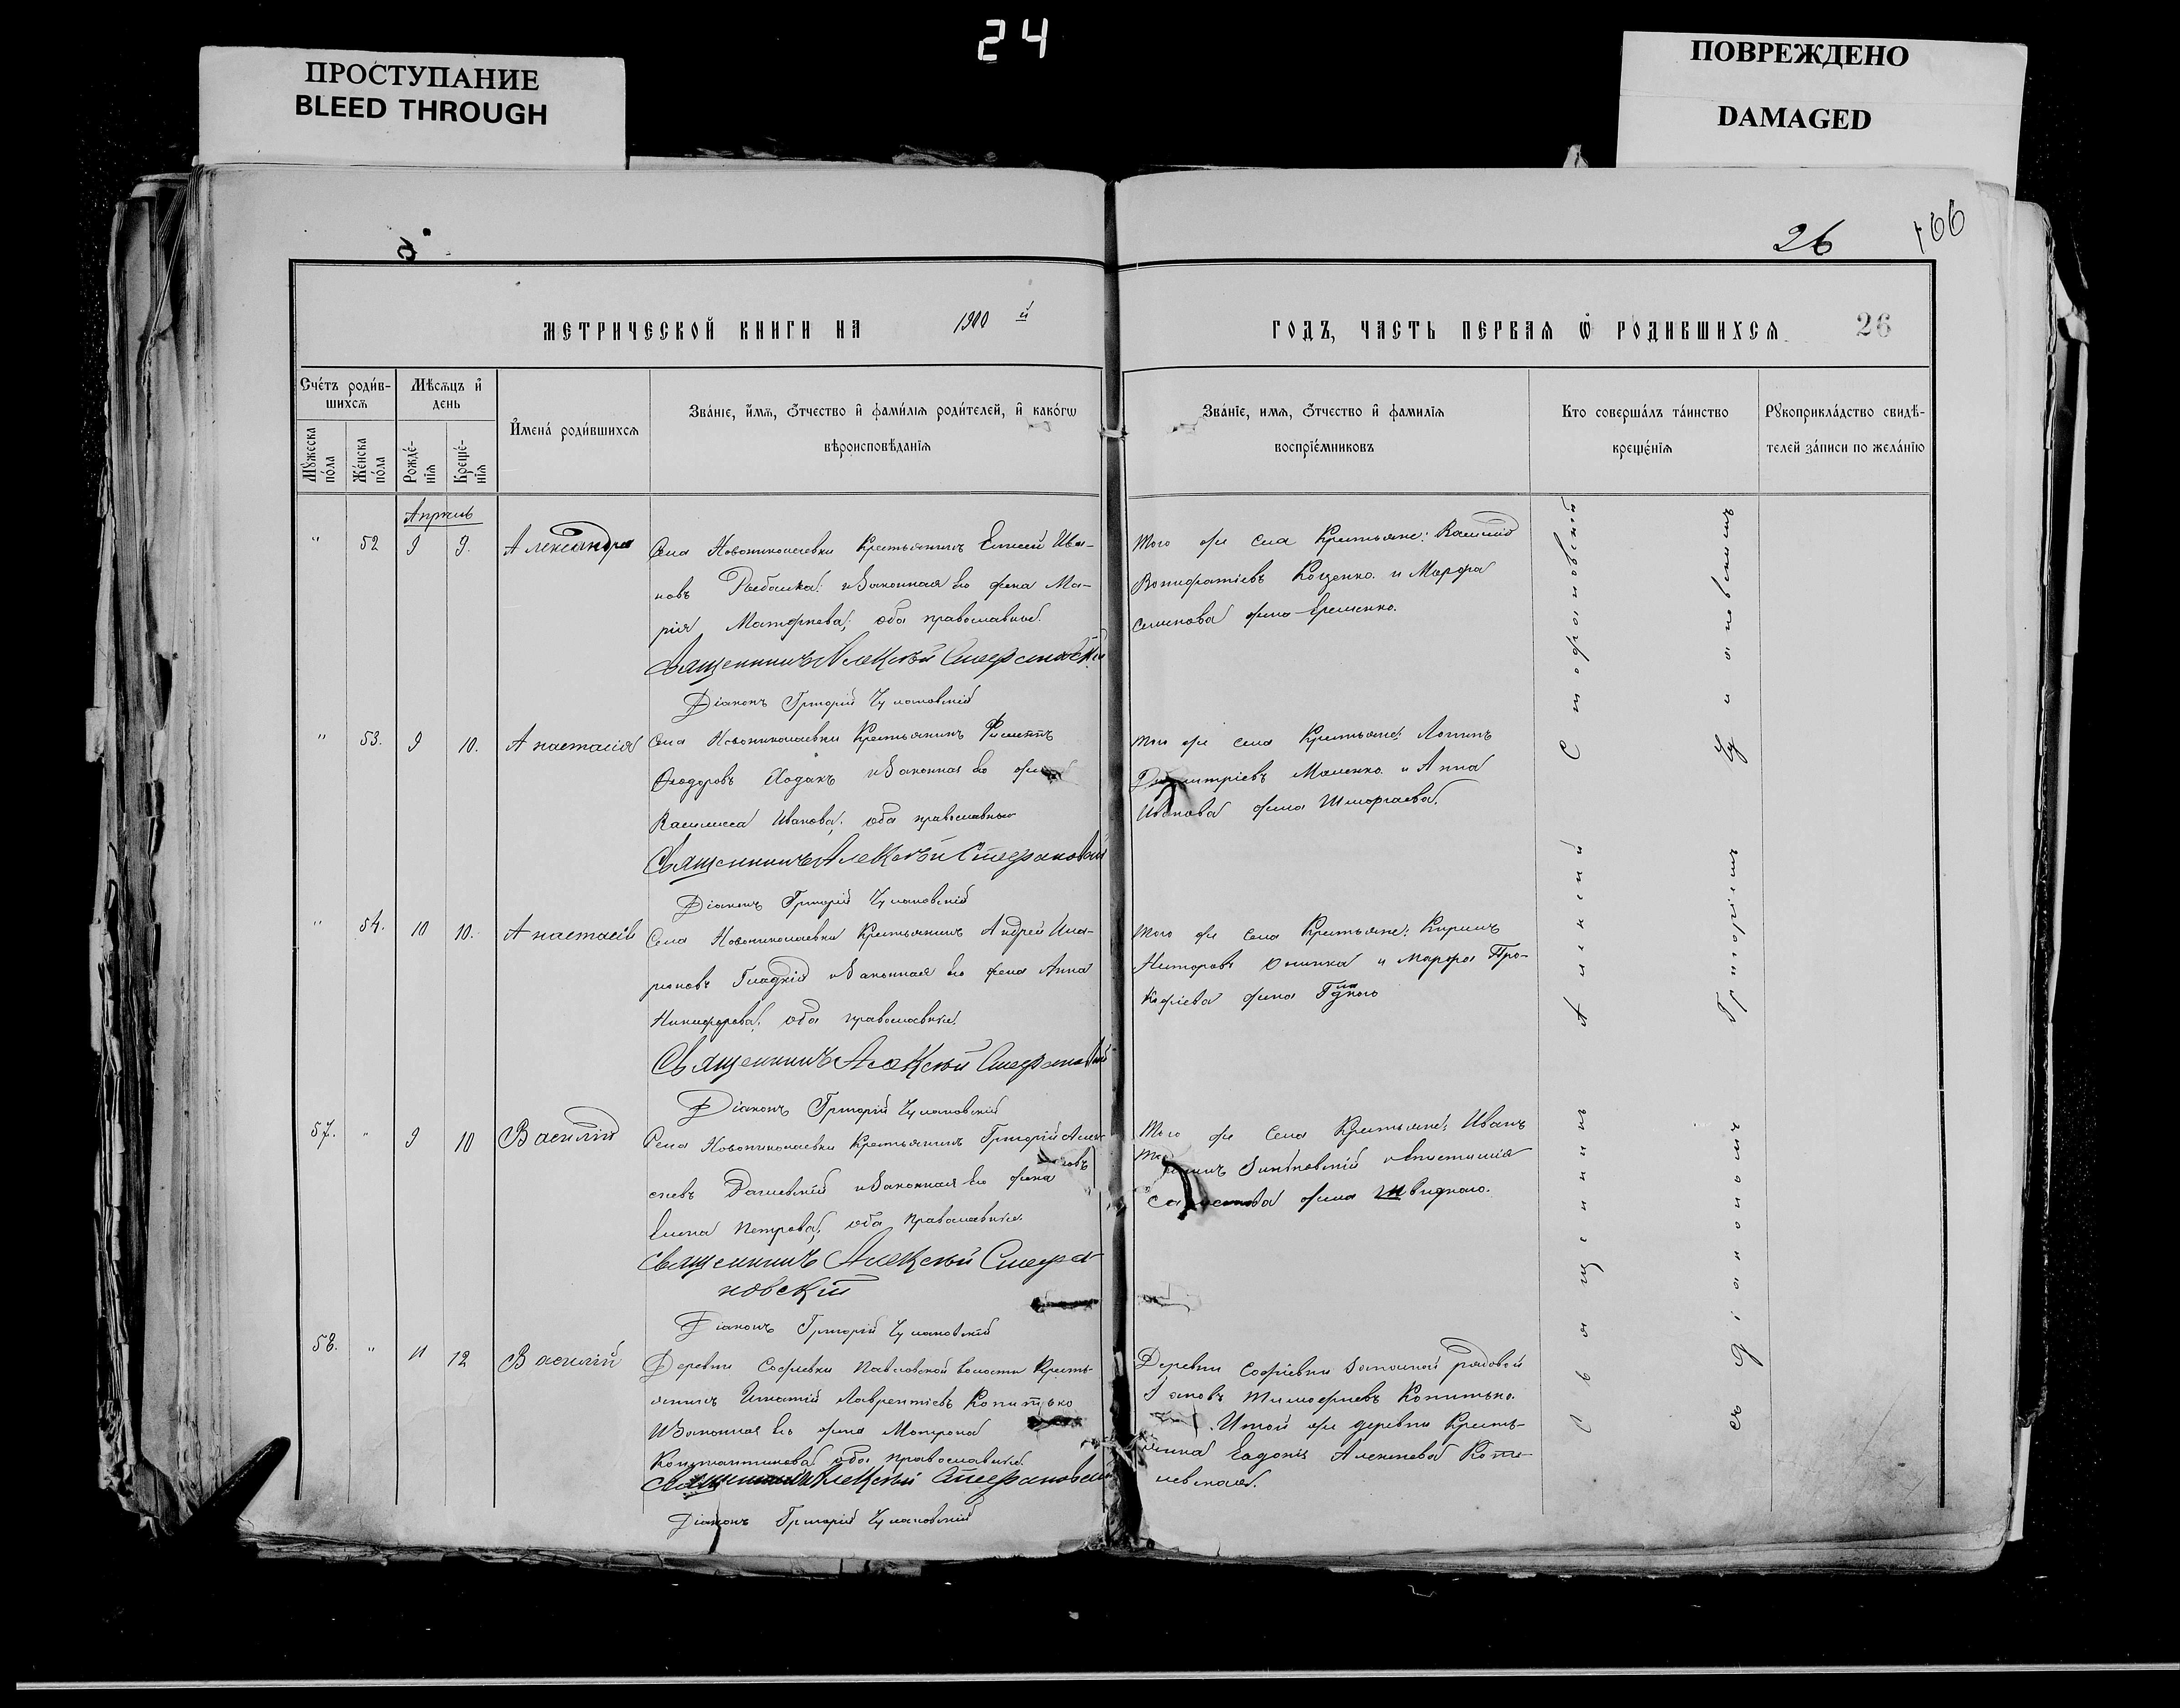 24
ПРОСТУПАНИЕ
BLEED THROUGH
ПОВРЕЖДЕНО
DAMAGED
26
166
МЕТРИЧЕСКОЙ КНИГИ НА 1900 й
ГОДЪ, ЧАСТЬ ПЕРВАЯ Ѡ РОДИВШИХСЯ
26
Счетъ родив-
шихся
Мѣсяцъ и
день
Мужеска
пола
Женска
пола
Рожде-
нія
Креще-
нія
Имена родившихся
Званіе, имя, отчество и фамилія родителей, и какогѡ
вѣроисповѣданія
Званіе, имя, отчество и фамилія
воспріемниковъ
Кто совершалъ таинство
крещенія
Рукоприкладство свидѣ-
телей записи по желанію
Апрель
" 52 9 9. Александра
Села Новониколаевки Крестьянинъ Елисей Ива-
новъ Рыбалка и законная его жена Ма-
рія Матфиева, оба православные.
Священникъ Алексѣй Стефановскій
Діаконъ Григорій
Того же села Крестьяне: Василій
Вонифатіевъ Коценко и Марфа
Семенова жена Ерещенко.
" 53. 9 10. Анастасія
Села Новониколаевки Крестьянинъ Филиппъ
Ѳеодоровъ Ходакъ и законная его жена
Василисса Иванова, оба православные
Священникъ Алексѣй Стефановскій
Діаконъ Григорій
Того же села Крестьяне: Логинъ
Димитріевъ Маленко и Анна
Иванова жена
" 54. 10 10. Анастасія
Села Новониколаевки Крестьянинъ Андрей Ила-
ріоновъ Гладкій и законная его жена Анна
Никифорова, оба православные.
Священникъ Алексѣй Стефановскій
Діаконъ Григорій
Того же села Крестьяне: Кирилъ
и Марфа Про-
кофіева жена Гладкого
57. " 9 10 Василій
Села Новониколаевки Крестьянинъ Григорій
и законная его жена
Елена Петрова, оба православные.
Священникъ Алексѣй Стефа
новскій
Діаконъ Григорій
Того же села Крестьяне: Иванъ
жена Швидкого.
58. " 11 12 Василій
Деревни Софіевки Павловской волости Кресть-
янинъ Игнатій Лаврентіевъ Копитько
и законная его жена Матрона
Константинова оба православные.
Священникъ Алексѣй Стефановскій
Діаконъ Григорій
Деревни Софіевки запасный рядовой
Яковъ Тимофиевъ Копитько.
И той же деревни Кресть-
янка Евдокія Алексиева
Священникъ Алексѣй Стефановскій
съ Діакономъ Григоріемъ